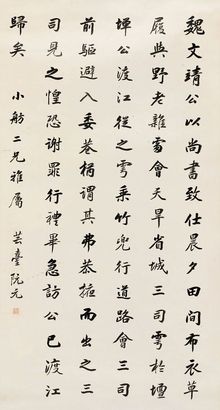 魏文靖公以尚書致仕晨夕田間布衣草
履與野老雜處會天旱省城三司雩於壇
墠公渡江從之雩乘竹兜行道路會三司
前驅避入委巷謂其弗恭而出之三
司見之惶恐謝罪行禮畢急訪公已渡江
歸矣 小舫二兄雅屬 芸臺阮元